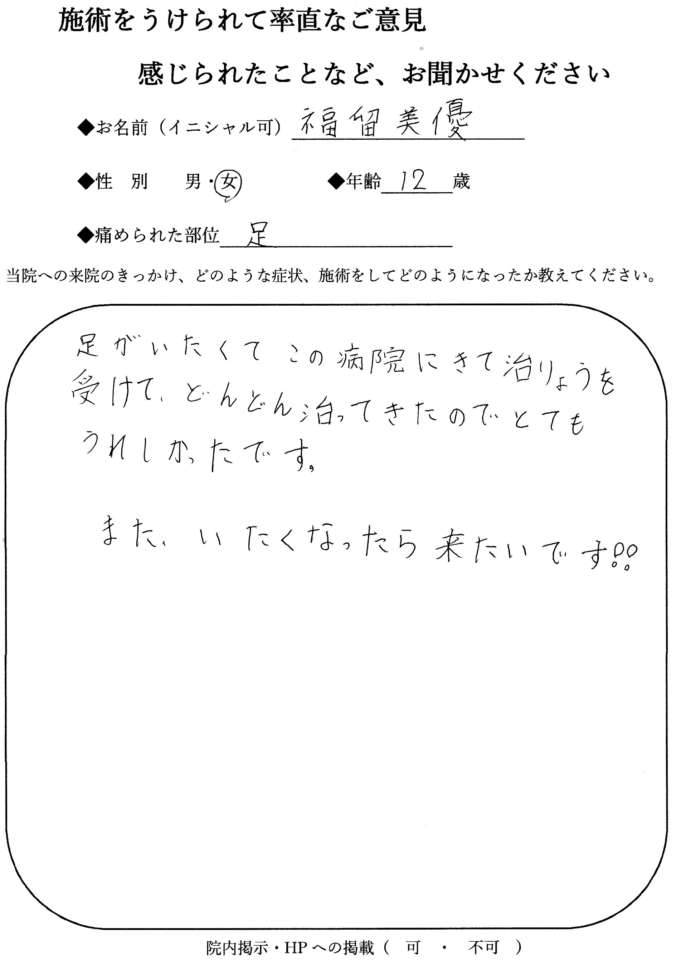 施術をうけられて率直なご意見
感じられたことなど、お聞かせください
◆お名前（イニシャル可）福留美優
◆性 別 男・女 ◆年齢 12 歳
◆痛められた部位 足
当院への来院のきっかけ、どのような症状、施術をしてどのようになったか教えてください。
足がいたくてこの病院にきて治りょうを
受けて、どんどん治ってきたのでとても
うれしかったです。
また、いたくなったら来たいです!!
院内掲示・HPへの掲載（ 可 ・ 不可 ）